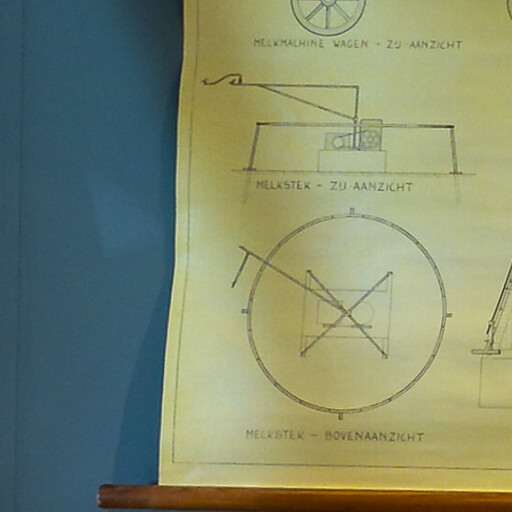 MELKMACHINE WAGEN - ZIJ AANZICHT
MELKSTEK - ZIJ AANZICHT
MELKSTEK - BOVENAANZICHT